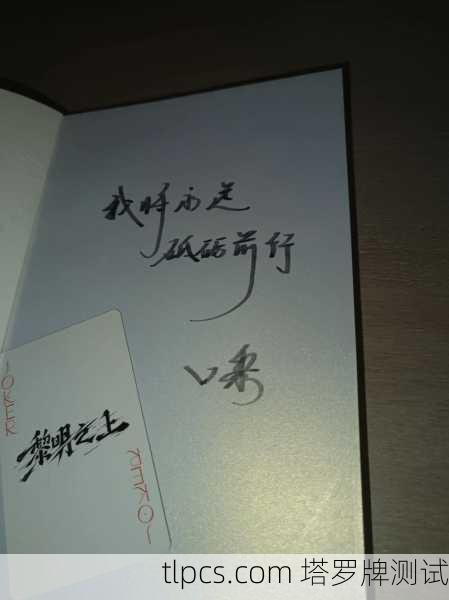 我将永远
砥砺前行
JOKER
黎明之上
JOKER
tlpcs.com 塔罗牌测试